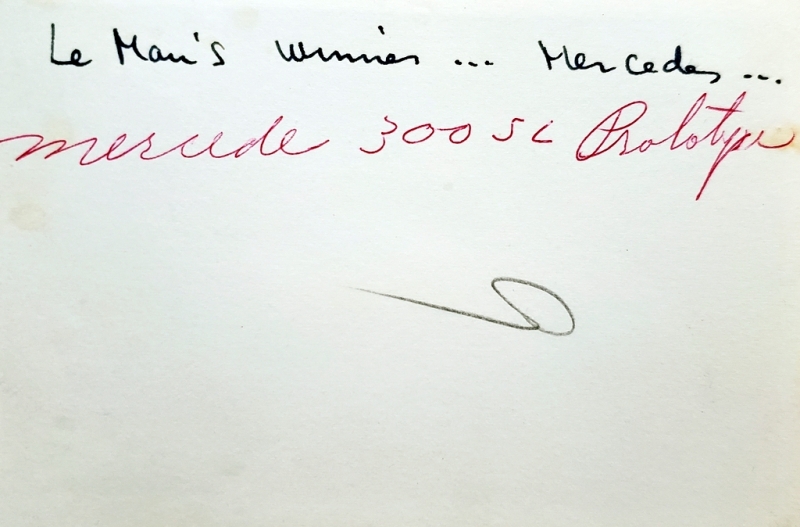 Le Man's winner ... Mercedes ...
mercede 300 SL Prototype